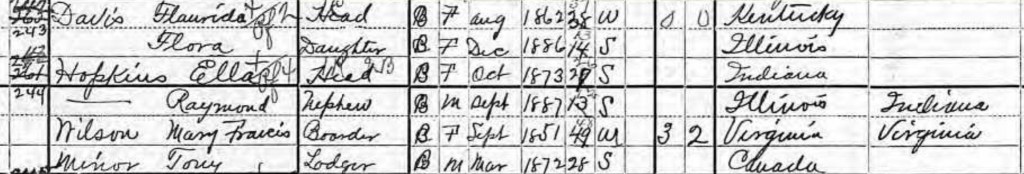 Davis Flaurida Head B F Aug 1862 38 W 0 0 Kentucky
243 Flora Daughter B F Dec 1886 14 S Illinois
Hopkins Ella Head B F Oct 1873 27 S Indiana
244 — Raymond Nephew B M Sept 1887 13 S Illinois Indiana
Wilson Mary Francis Boarder B F Sept 1851 49 3 2 Virginia Virginia
Minor Tony Lodger B M Mar 1872 28 S Canada